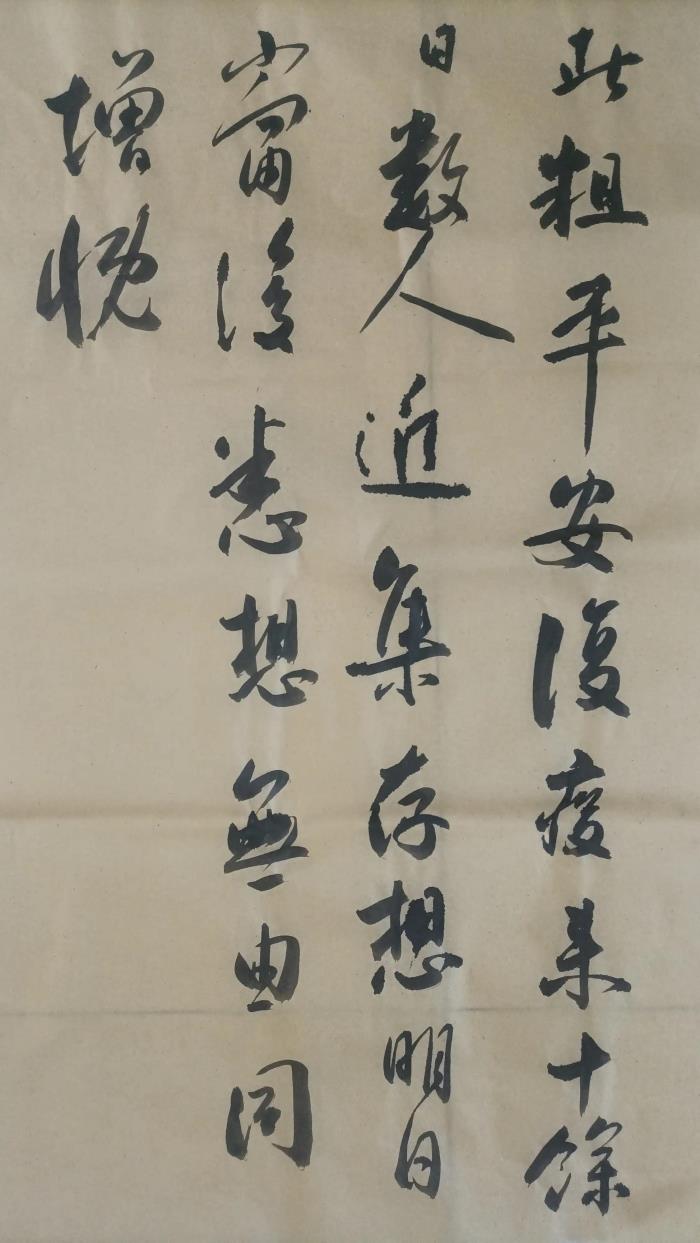 此粗平安復廋来十餘
日數人近集存想明日
當復悉想無由同
增慨